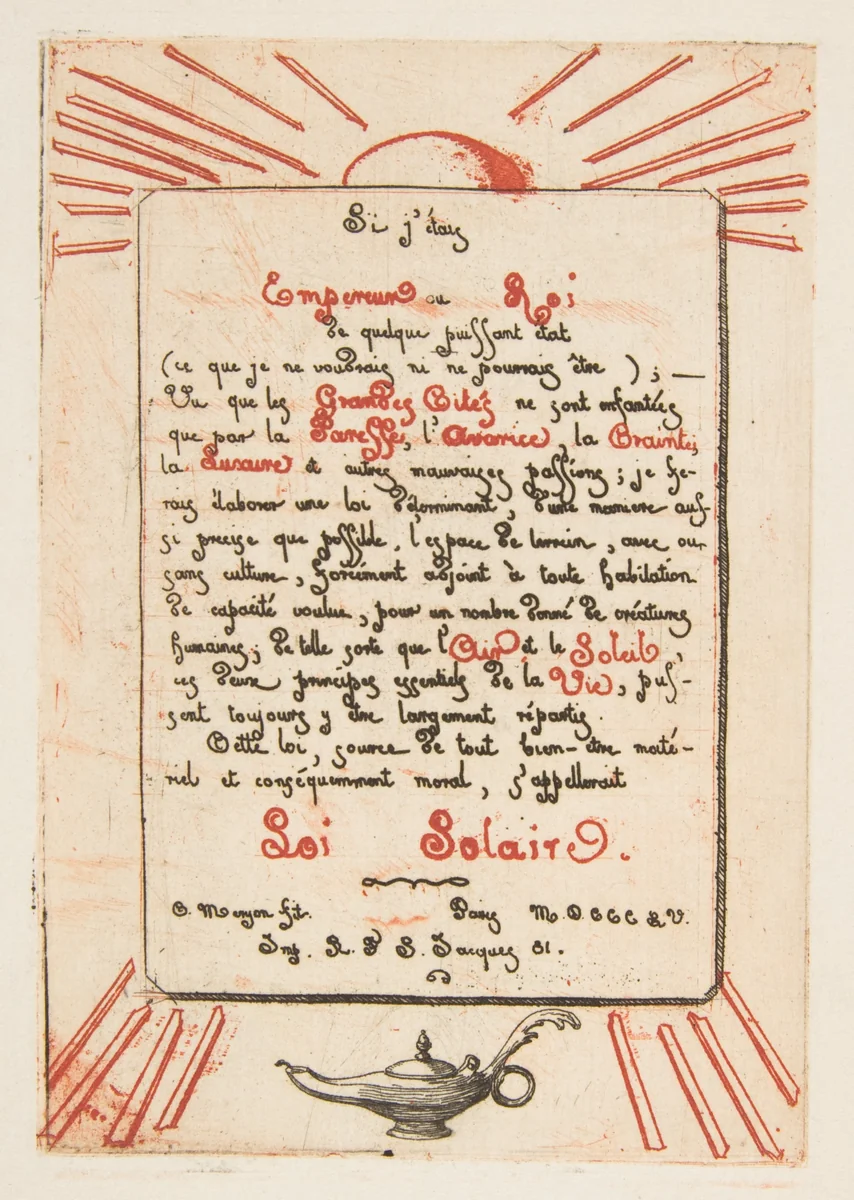 Si j'étais
Empereur ou Roi
de quelque puissant état
(ce que je ne voudrais ni ne pourrais être ) ; —
Vu que les Grandes Cités ne sont enfantées
que par la Paresse, l'Avarice, la Crainte,
la Luxure et autres mauvaises passions ; je fe-
rais élaborer une loi déterminant, d'une maniere aus-
si precise que possible, l'espace de terrein, avec ou
sans culture, forcément adjoint à toute habitation
de capacité voulue, pour un nombre donné de créatures
humaines ; de telle sorte que l'Air et le Soleil,
ces deux principes essentiels de la Vie, puis-
sent toujours y être largement répartis.
Cette loi, source de tout bien-être maté-
riel et conséquemment moral, s'appellerait
Loi Solaire.
C. Meryon fit. Paris M.D.CCC L.V.
Imp. R. S. Jacques 81.